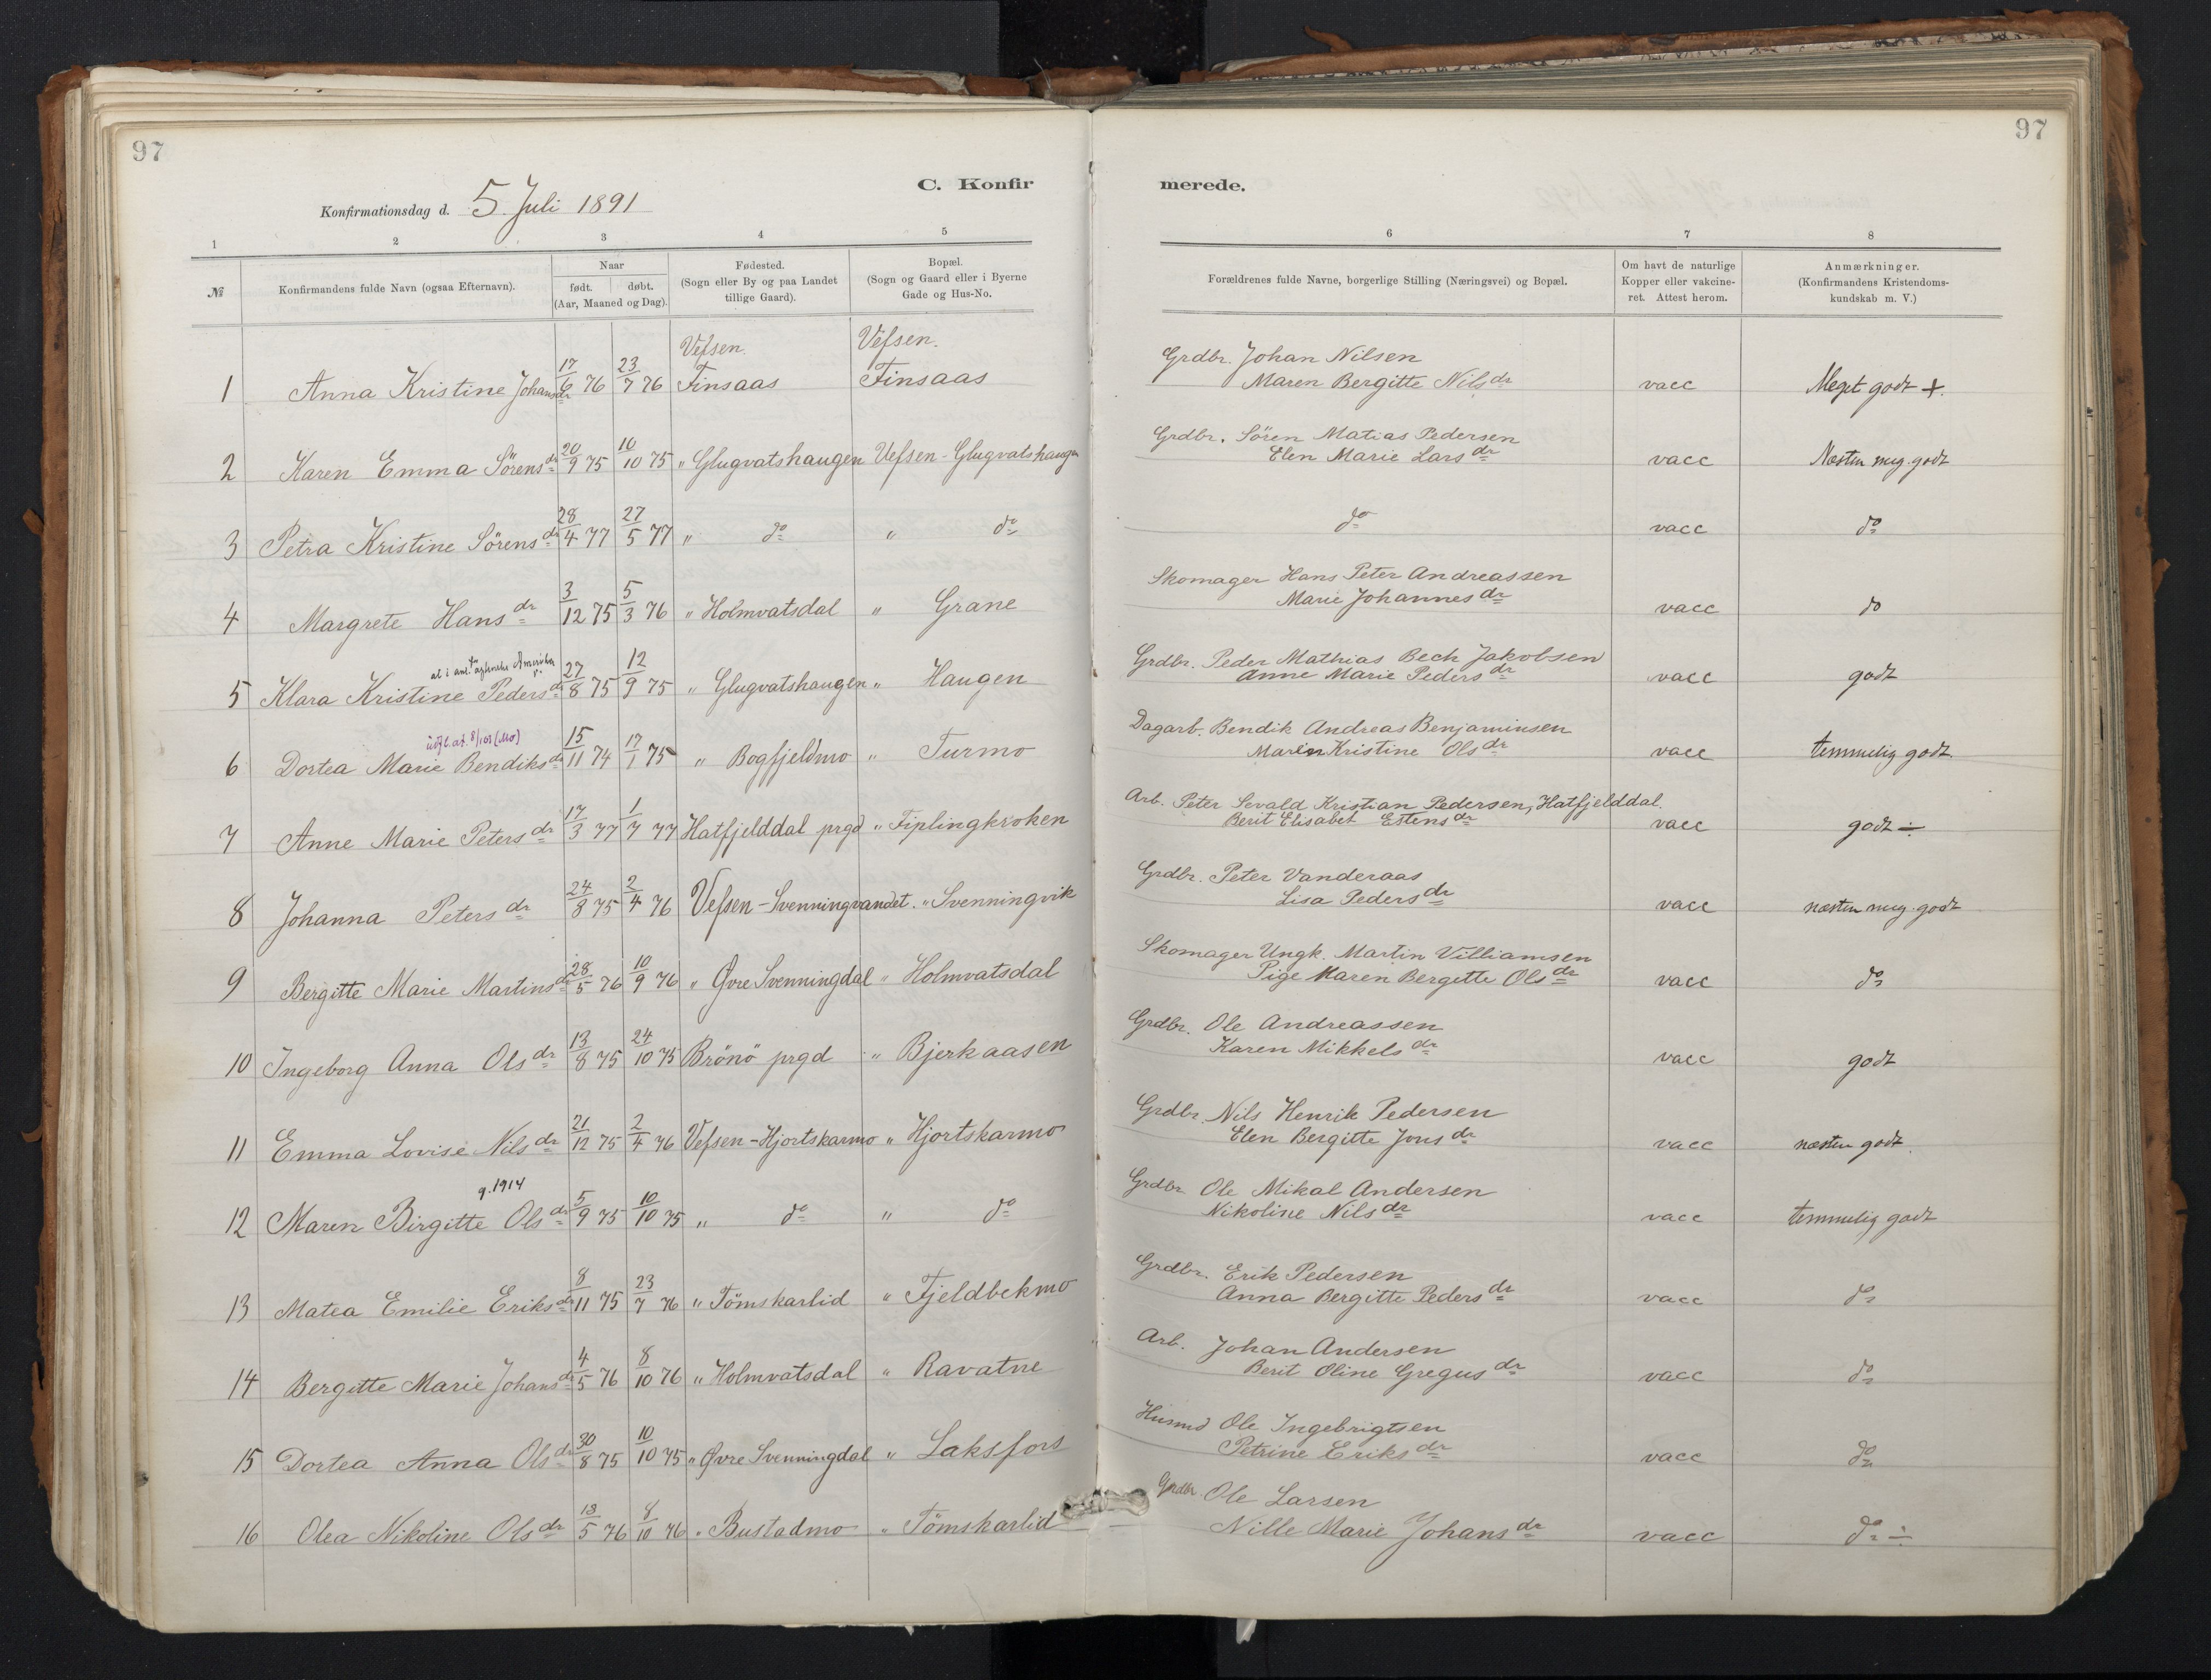 97
97
C. Konfir
merede.
Konfirmationsdag d. 5 Juli 1891
1 2 3 4 5 6 7 8
№ Konfirmandens fulde Navn (ogsaa Efternavn). Naar født. døbt. (Aar, Maaned og Dag). Fødested. (Sogn eller By og paa Landet tillige Gaard). Bopæl. (Sogn og Gaard eller i Byerne Gade og Hus-No. Forældrenes fulde Navne, borgerlige Stilling (Næringsvei) og Bopæl. Om havt de naturlige Kopper eller vakcineret. Attest herom. Anmærkninger. (Konfirmandens Kristendomskundskab m. V.)
Vefsen. Vefsen. Grdbr. Johan Nilsen
1 Anna Kristine Johansdr 17/6 76 23/7 76 Finsaas Finsaas Maren Bergitte Nilsdr vacc Meget godt +.
Grdbr. Sören Matias Pedersen
2 Karen Emma Sörensdr 20/9 75 10/10 75 " Glugvatshaugen Vefsen - Glugvatshaugen Elen Marie Larsdr vacc Næsten meg. godt
3 Petra Kristine Sörensdr 28/4 77 27/5 77 " do " do do vacc do
Skomager Hans Peter Andreassen
4 Margrete Hansdr 3/12 75 5/3 76 " Holmvatsdal " Grane Marie Johannesdr vacc do
at i Amerika
Grdbr. Peder Mathias Bech Jakobsen
5 Klara Kristine Pedersdr 27/8 75 12/9 75 " Glugvatshaugen " Haugen Anne Marie Pedersdr vacc godt
8/1 (Mo)
Dagarb. Bendik Andreas Benjaminsen
6 Dortea Marie Bendiksdr 15/11 74 17/1 75 " Bogfjeldmo " Turmo Maren Kristine Olsdr vacc temmelig godt.
Arb. Peter Sevald Kristian Pedersen, Hatfjelddal.
7 Anne Marie Petersdr 17/3 77 1/7 77 Hatfjelddal prgd " Fiplingkroken Berit Elisabet Estensdr vacc godt ÷
Grdbr. Peter Vanderaas
8 Johanna Petersdr 24/8 75 2/4 76 Vefsen - Svenningvandet. " Svenningvik Lisa Pedersdr vacc næsten meg. godt
Skomager Ungk. Martin Villiamsen
9 Bergitte Marie Martinsdr 28/5 76 10/9 76 " Øvre Svenningdal " Holmvatsdal Pige Maren Bergette Olsdr vacc do
Grdbr. Ole Andreassen
10 Ingeborg Anna Olsdr 13/8 75 24/10 75 Brönö prgd " Bjerkaasen Karen Mikkelsdr vacc godt
Grdbr. Nils Henrik Pedersen
11 Emma Lovise Nilsdr 21/12 75 2/4 76 Vefsen - Hjortskarmo " Hjortskarmo Elen Bergitte Jonsdr vacc næsten godt.
g. 1914
Grdbr Ole Mikal Andersen
12 Maren Birgitte Olsdr 5/9 75 10/10 75 " do " do Nikoline Nilsdr vacc temmelig godt
Grdbr. Erik Pedersen
13 Matea Emilie Eriksdr 8/11 75 23/7 76 " Tömskarlid " Fjeldbekmo Anna Bergitte Pedersdr vacc do
Arb. Johan Andersen
14 Bergitte Marie Johansdr 4/5 76 8/10 76 " Holmvatsdal " Ravatne Berit Oline Gregusdr vacc do
Husmd Ole Ingebrigtsen
15 Dortea Anna Olsdr 30/8 75 10/10 75 " Øvre Svenningdal " Laksfors Petrine Eriksdr vacc do
Grdbr. Ole Larsen
16 Olea Nikoline Olsdr 13/5 76 8/10 76 " Bustadmo " Tömskarlid Nille Marie Johansdr vacc do ÷